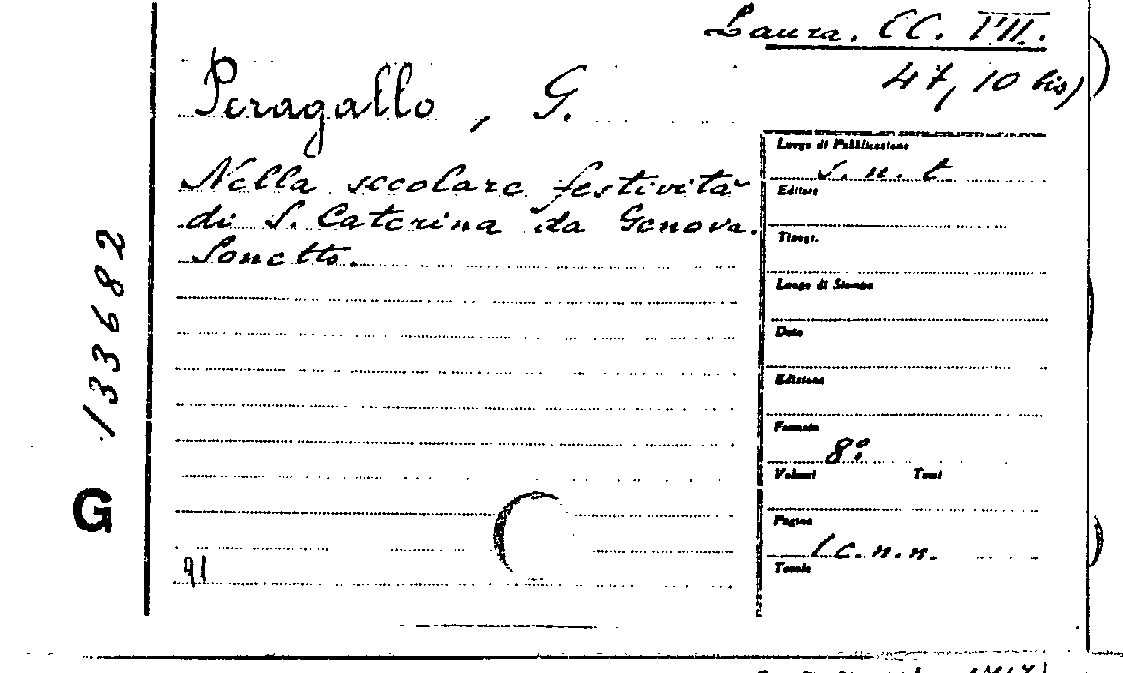 Laura. CC. VII.
47, 10 bis)
Peragallo, G.
Nella secolare festività
di S. Caterina da Genova.
Sonetto.
91
133682
G
Luogo di Pubblicazione
s. n. t.
Editore
Tipogr.
Luogo di Stampa
Data
Edizione
Formato
8º
Volumi Tomi
Pagine
1 c. n. n.
Tavole